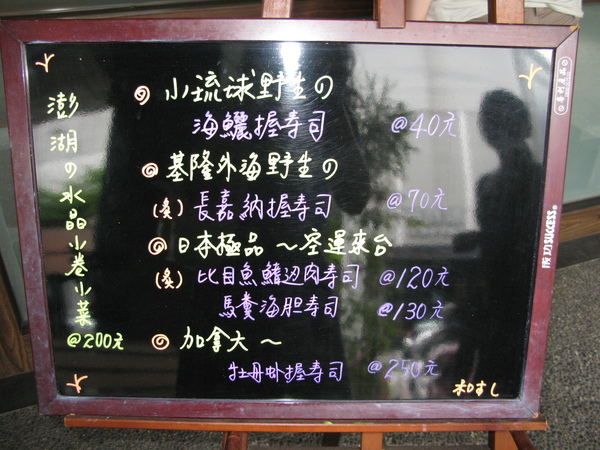 澎湖の水晶小卷小菜
@200元
小琉球野生の
海鱺握壽司 @40元
基隆外海野生の
(炙) 長嘉納握寿司 @70元
日本極品～空運來台
(炙) 比目魚鰭辺肉寿司 @120元
馬糞海胆寿司 @130元
加拿大～
牡丹虾握寿司 @250元
和すし
成功SUCCESS®